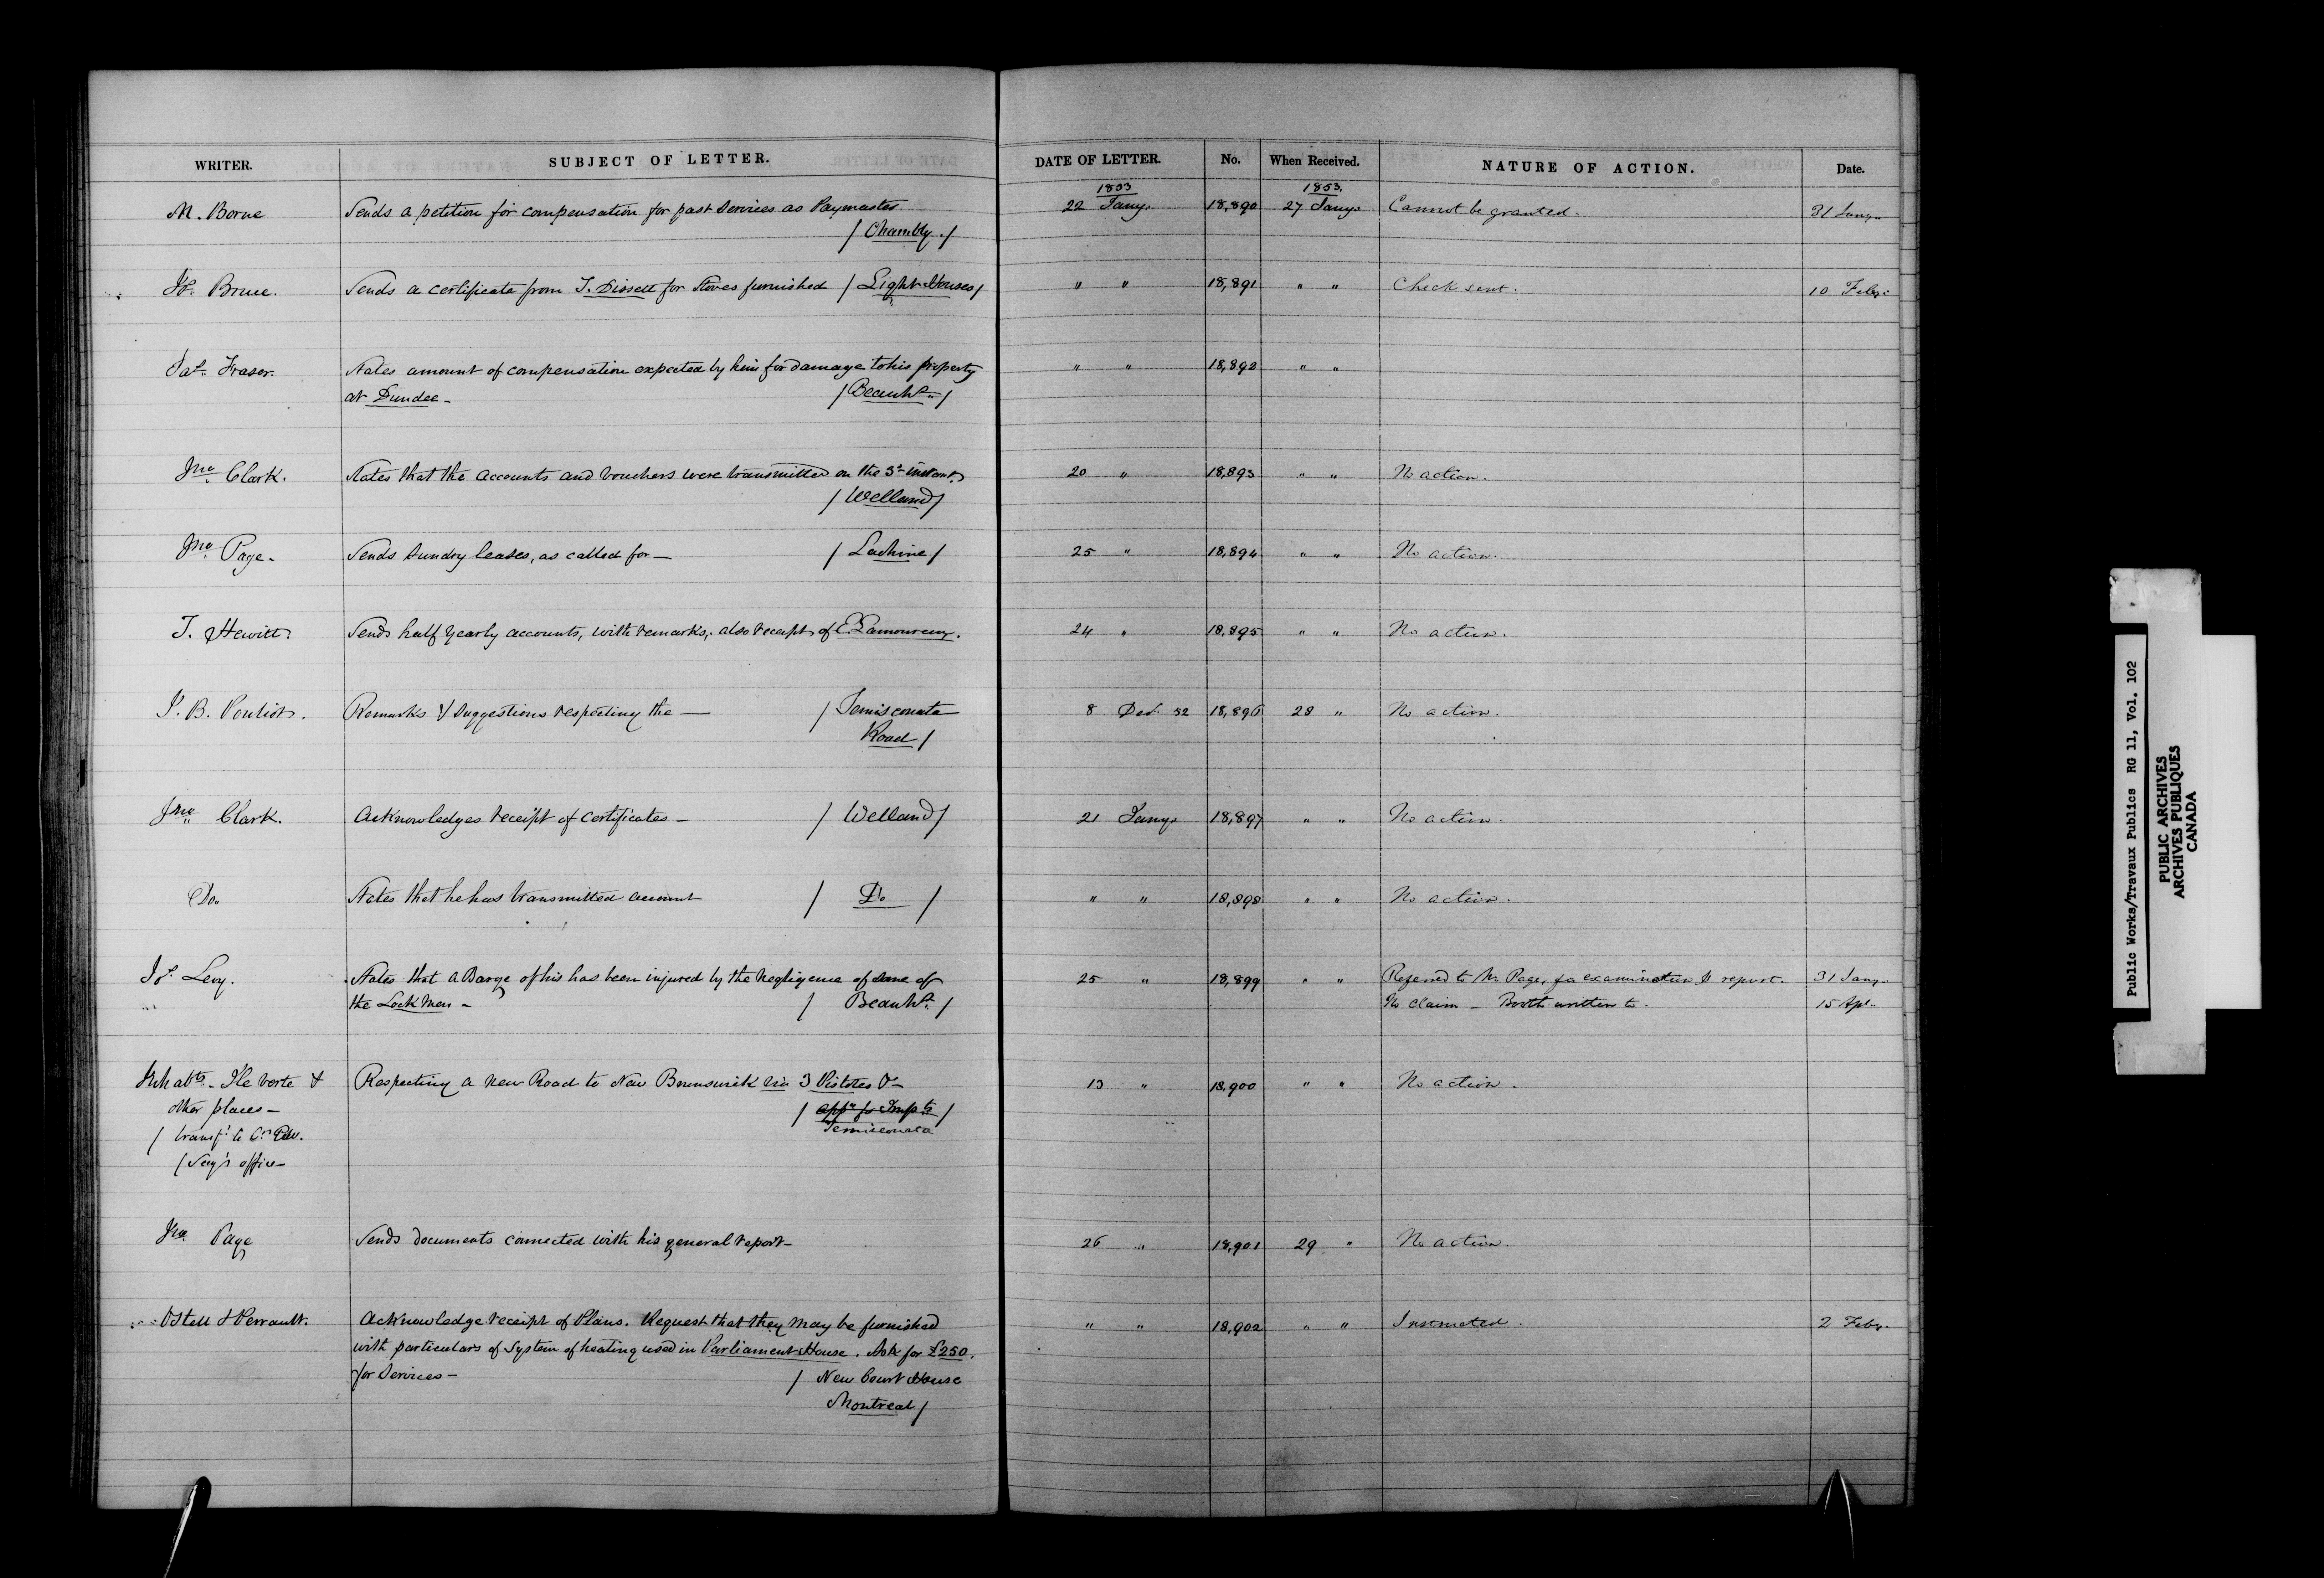 WRITER. SUBJECT OF LETTER. DATE OF LETTER. No. When Received. NATURE OF ACTION. Date.
1853 1853.
M. Borne Sends a petition for compensation for past services as Paymaster 22 Jany. 18,890 27 Jany. Cannot be granted. 31 Jany.
/ Chambly. /
Jos. Brue. Sends a certificate from T. Dissett for Stoves furnished / Light Houses / " " 18,891 " " Check sent. 10 Feby.
Jas. Fraser. States amount of compensation expected by him for damage to his property " " 18,892 " "
at Dundee - / Beauhs. /
Jno. Clark. States that the accounts and vouchers were transmitted on the 3d instant. 20 " 18,893 " " No action.
/ Welland /
Jno. Page. Sends sundry leases, as called for — / Lachine / 25 " 18,894 " " No action.
T. Hewitt. Sends half yearly accounts, with remarks, also receipts of E. Lamoureux. 24 " 18,895 " " No action.
J. B. Pouliot. Remarks & suggestions respecting the — / Temisconata 8 Dec. 52 18,896 28 " No action.
Road /
Jno. Clark. Acknowledges receipt of certificates - / Welland / 21 Jany. 18,897 " " No action.
Do. States that he has transmitted account / Do / " " 18,898 " " No action.
Js. Levy. States that a Barge of his has been injured by the negligence of some of 25 " 18,899 " " Referred to Mr. Page, for examination & report. 31 Jany.
the Lock Men - / Beauhs. / No claim - Booth written to. 15 Apl.
Inhabts. Ile verte & Respecting a new Road to New Brunswick via 3 Pistoles &- 13 " 18,900 " " No action.
other places - / appn for Impts /
/ transfd. to Cn. Temisconata
/ Secy's office -
Jno. Page Sends documents connected with his general report - 26 " 18,901 29 " No action.
Ostell & Perrault. Acknowledge receipt of Plans. Request that they may be furnished " " 18,902 " " Instructed. 2 Feby.
with particulars of System of heating used in Parliament House. Ask for £250.
for Services - / New Court House
Montreal /
Public Works/Travaux Publics RG 11, Vol. 102
PUBLIC ARCHIVES
ARCHIVES PUBLIQUES
CANADA